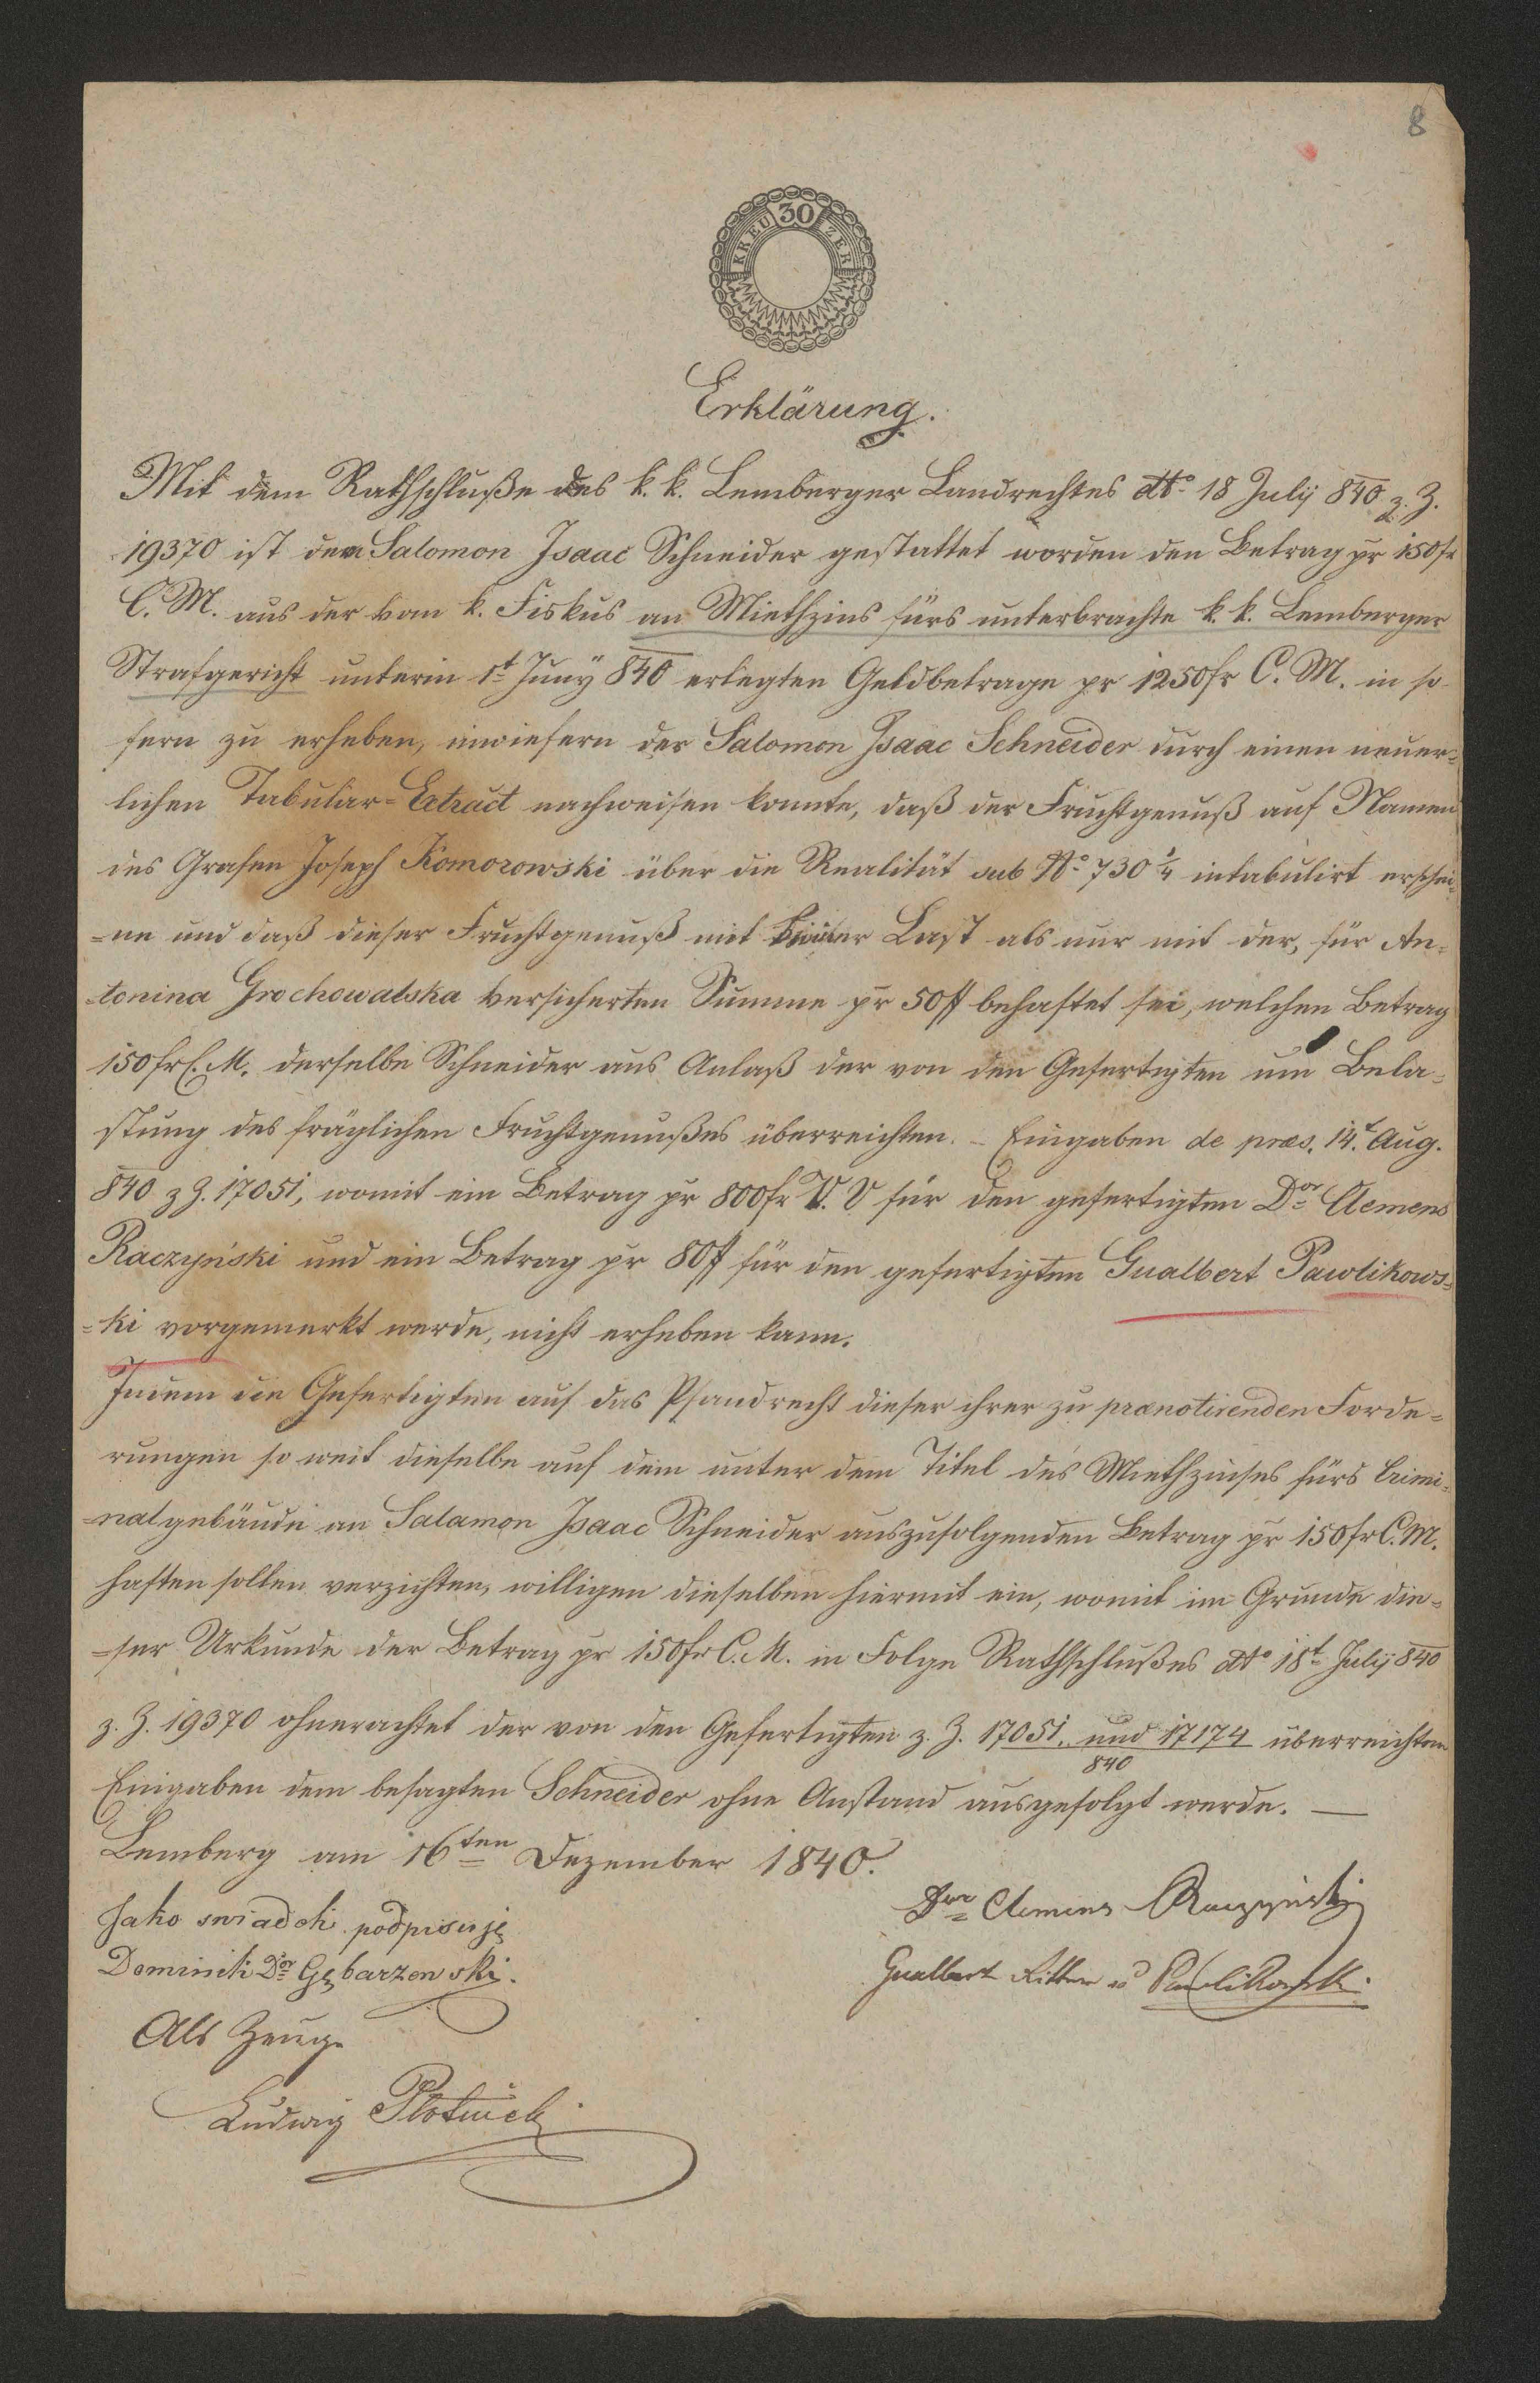 8
30
KREUZER
Erklärung.
Mit dem Rathschluße des k. k. Lemberger Landrechtes dto 18 July 840 z. Z.
19370 ist dem Salomon Isaac Schneider gestattet worden den Betrag pr 150 fr
C. M. aus der vom k. Fiskus an Miethzins fürs unterbrachte k. k. Lemberger
Strafgericht unterm 1t Juny 840 erlegten Geldbetrage pr 1250 fr C. M. in so
fern zu erheben, inwiefern der Salomon Isaac Schneider durch einen neuer-
lichen Tabular-Extract nachweisen konnte, daß der Fruchtgenuß auf Namen
des Grafen Joseph Komorowski über die Realität sub No 730 2/4 intabulirt erschei-
-ne und daß dieser Fruchtgenuß mit keiner Last als nur mit der, für An-
-tonina Grochowalska versicherten Summe pr 50 # behaftet sei, welchen Betrag
150 fr C. M. derselbe Schneider aus Anlaß der von den Gefertigten um Bela-
stung des fräglichen Fruchtgenußes überreichten. - Eingaben de præs. 14t Aug.
840 z Z. 17051, womit ein Betrag pr 800 fr V. V für den gefertigten Dor Clemens
Raczyński und ein Betrag pr 80 # für den gefertigten Gualbert Pawlikows-
-ki vorgemerkt werde, nicht erheben kann.
Indem die Gefertigten auf das Pfandrecht dieser ihrer zu prænotirenden Forde-
rungen so weit dieselbe auf dem unter dem Titel des Miethzinses fürs Crimi-
-nalgebäude an Salamon Isaac Schneider auszufolgenden Betrag pr 150 fr C. M.
haften sollen verzichten, willigen dieselben hiermit ein, womit im Grunde die-
-ser Urkunde der Betrag pr 150 fr C. M. in Folge Rathschlußes dto 18t July 840
z. Z. 19370 ohnerachtet der von den Gefertigten z. Z. 17051. und 17174 überreichten
840
Eingaben dem besagten Schneider ohne Anstand ausgefolgt werde. —
Lemberg am 16ten Dezember 1840.
Dor Clemens Raczyński
Jako swiadek podpisuję
Dominik Dor Gębarzewski.
Gualbert Ritter v Pawlikowski.
Als Zeuge
Ludwig Plotnicki